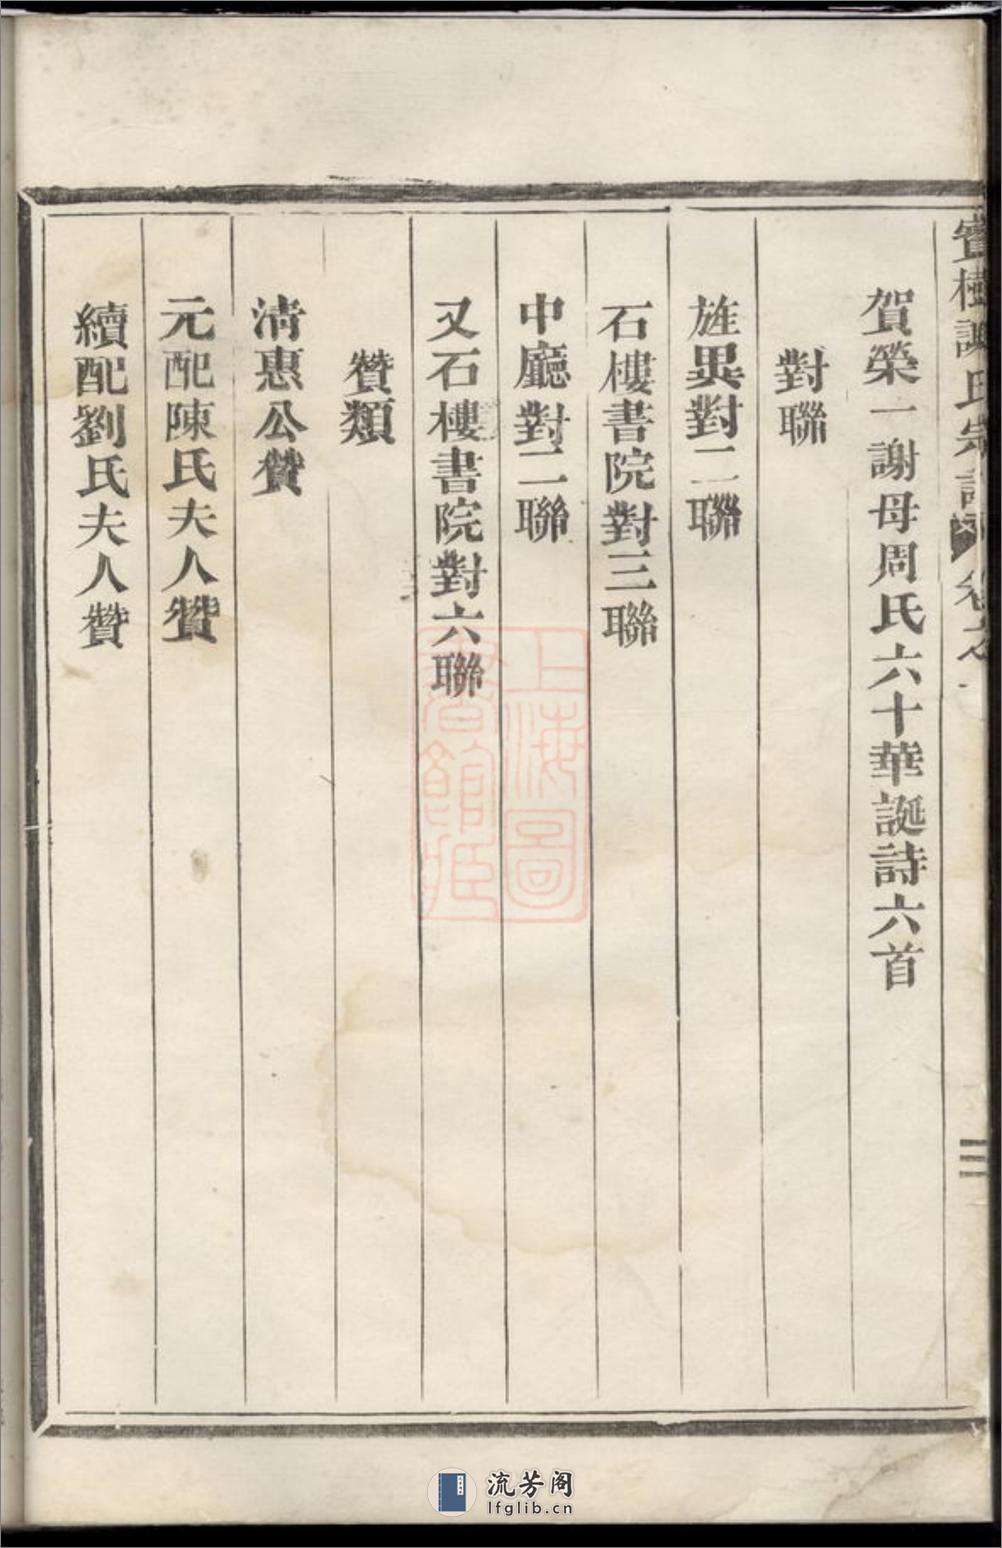 寶樹謝氏宗譜 卷之一
三
賀榮一謝母周氏六十華誕詩六首
對聯
旌異對二聯
石樓書院對三聯
中廳對二聯
又石樓書院對六聯
贊類
清惠公贊
元配陳氏夫人贊
續配劉氏夫人贊
上海圖
書館
流芳阁
lfglib.cn